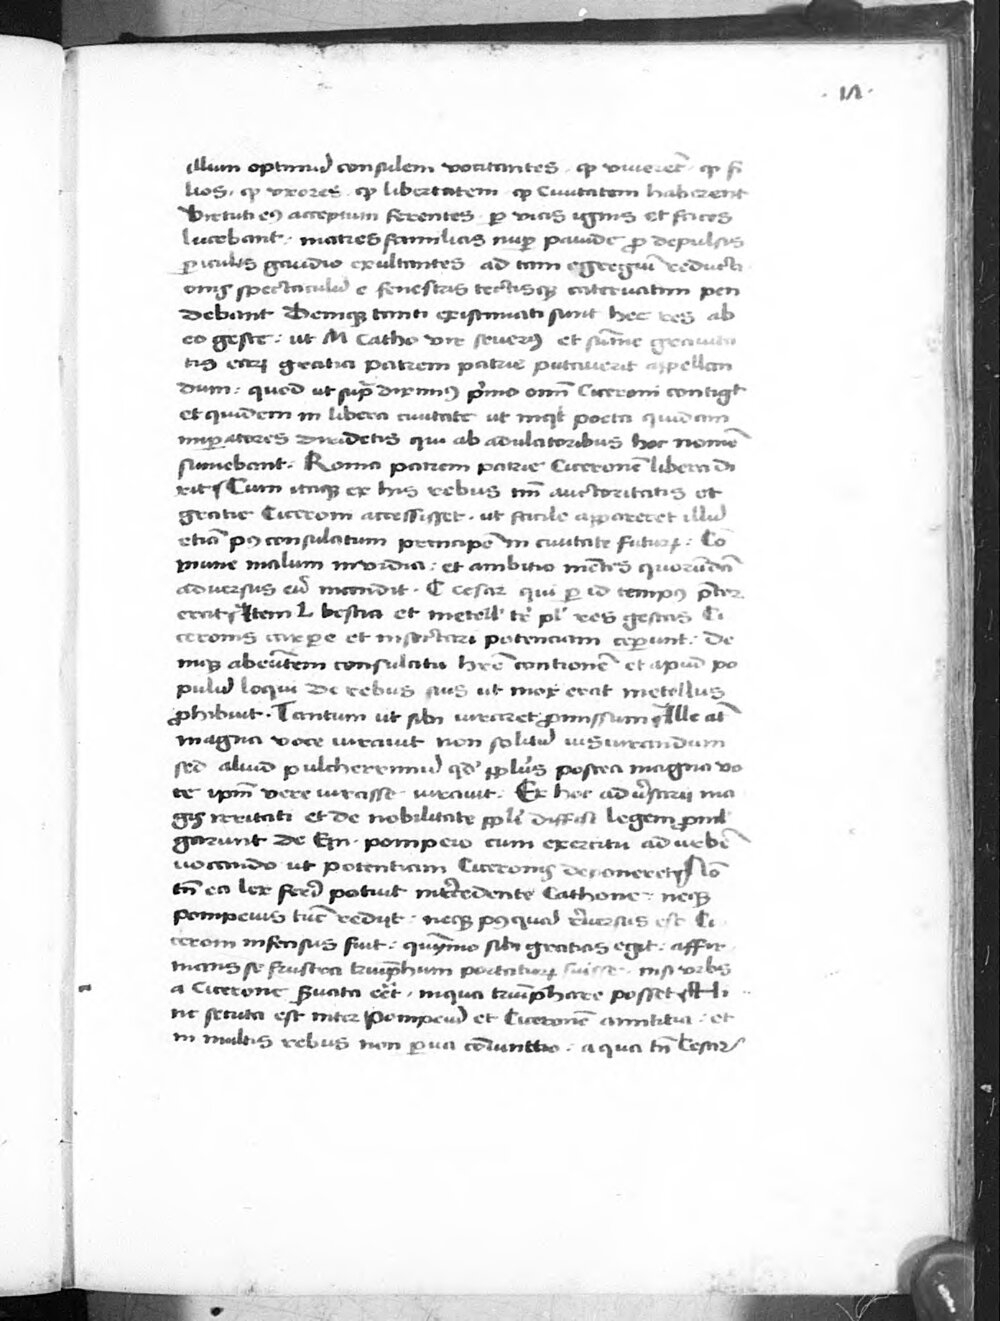 · 1Λ ·
illum optimū consulem vocitantes · qp viverēt · qp fi
lios · qp vxores · qp libertatem · qp Ciuitatem haberent
Virtuti eiꝯ acceptum ferentes · ꝑ vias ignis et faces
lucebant · matres familias nuꝑ pauide ꝓ depulsis
ꝑiculis gaudio exultantes ad tam egregiū reducti
onis spectaculū e fenestris tectisqꝫ cateruatim pen
debant Deniqꝫ tanti existimati sunt hec res ab
eo geste : ut M Catho vir seuerꝯ et sūme grauita
tis eaꝝ gratia patrem patrie putauerit appellan
dum : quod ut supͣ diximꝯ pͥmo oīm Ciceroni contigt
et quidem in libera ciuitate ut inqt poeta quidam
imꝑatores diridetis qui ab adulatoribus hoc nomē
sumebant : Roma patrem patrie Ciceronē libera di
xit ¶ Cum itaqꝫ ex his rebus tm̄ auctoritatis et
gratie Ciceroni accessisset · ut facile appareret illū
etiā pꝯ consulatum principē in ciuitate futuꝝ : Cō
mune malum inuidia : et ambitio mētes quorūdā
aduersus eū incendit · C Cesar qui ꝑ id tempꝯ pͣtor
erat ¶ Item L bestia et metellꝰ tͥ plꝰ res gestas Ci
ceronis carꝑe et insectari potenciam ceꝑunt · De
niqꝫ abeūtem consulatu hr̄e contionē et apud po
pulū loqui de rebus suis ut mox erat metellus
ꝓhibuit · Tantum ut sibi iuraret ꝓmissum ¶ Ille at̄
magna voce iurauit non solitū iusiurandum
sed aliud pulcherrimū qdꝰ ꝓplūs postea magna vo
ce ipm̄ vere iurasse iurauit : Ex hoc adūsarii ma
gis irritati et de nobilitate ꝓpli diffisi legem ꝓmul
garunt de Gn · pompeio cum exercitu ad urbē
uocando ut potentiam Ciceronis deponeret ¶ Nō
tn̄ ea lex ferri potuit intͬcedente Cathone : neqꝫ
pompeius tūc redijt : neqꝫ pꝯquā rēuersus est Ci
ceroni infensus fuit : quīymo sibi gratias egit : affir
mans se frustra triūphum portatuꝝ fuisse · nisi vrbs
a Cicerone ẜuata eēt · in qua triūphare posset ¶ Hi
nc secuta est inter Pompeiū et Ciceronē amicitia : et
in multis rebus non ꝑua cōiunctio : a qua tn̄ Cesar